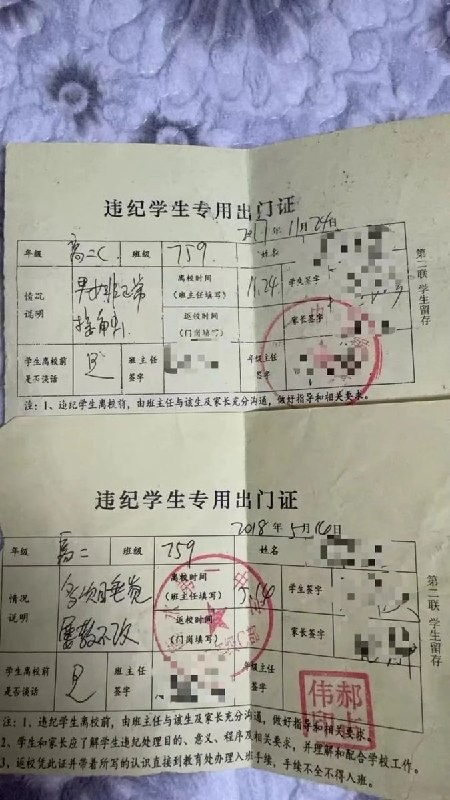 违纪学生专用出门证
2017年11月24日
年级 高二C 班级 759 姓名
情况说明 男女非正常接触 离校时间（班主任填写） 11.24 学生签字
返校时间（门岗填写） 家长签字
学生离校前是否谈话 是 班主任签字 年级主任签字
注：1、违纪学生离校前，由班主任与该生及家长充分沟通，做好指导和相关要求。
第二联 学生留存
违纪学生专用出门证
2018年5月14日
年级 高二 班级 759 姓名
情况说明 睡觉 屡教不改 离校时间（班主任填写） 5.14 学生签字
返校时间（门岗填写） 家长签字
学生离校前是否谈话 是 班主任签字 年级主任签字
郝伟
注：1、违纪学生离校前，由班主任与该生及家长充分沟通，做好指导和相关要求。
2、学生和家长应了解学生违纪处理目的、意义、程序及相关要求，并理解和配合学校工作。
3、返校凭此证并带着所写的认识直接到教育处办理入班手续，手续不全不得入班。
第二联 学生留存